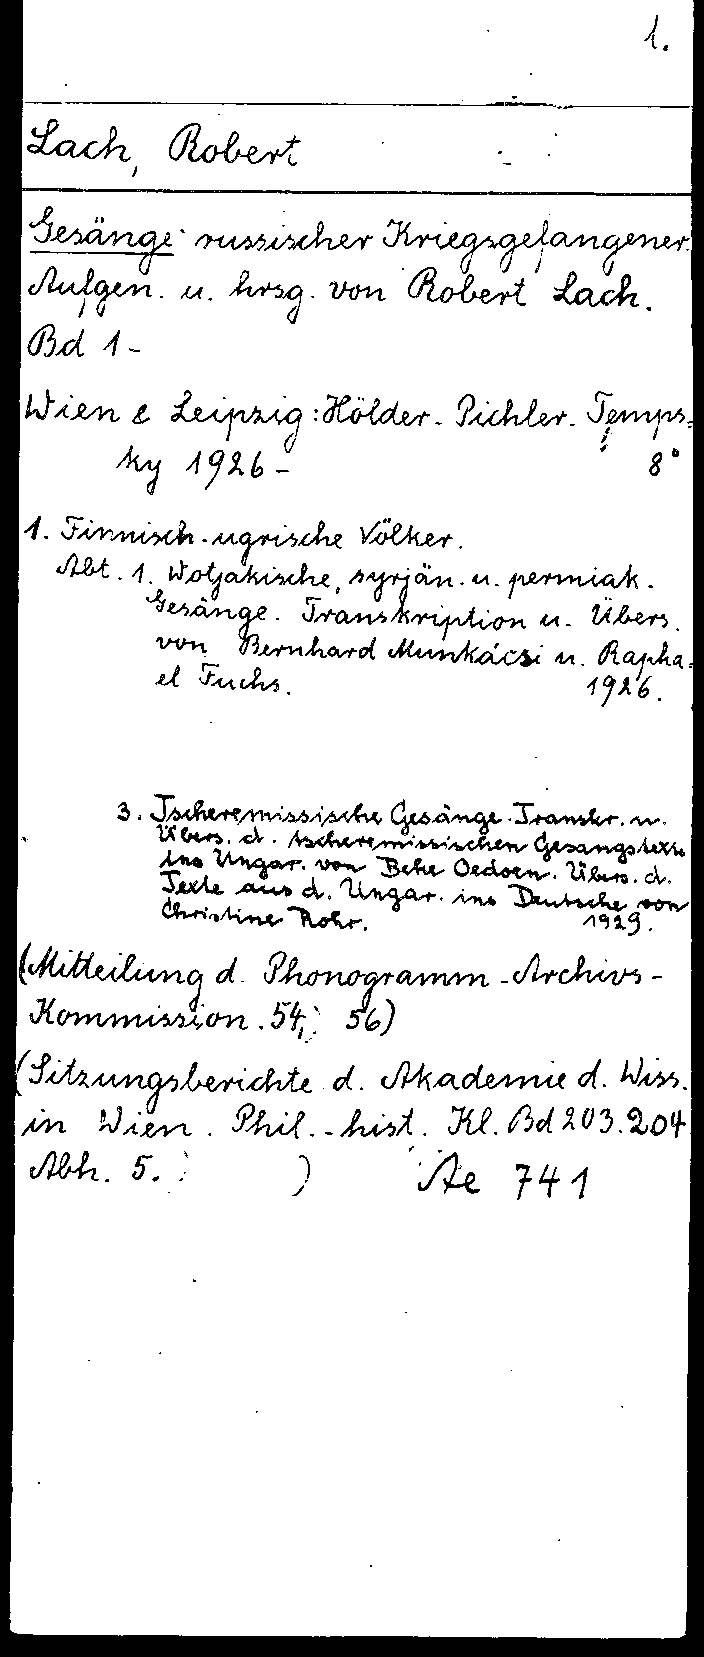 1.
Lach, Robert
Gesänge russischer Kriegsgefangener.
Aufgen. u. hrsg. von Robert Lach.
Bd 1-
Wien & Leipzig: Hölder-Pichler-Temps=
ky 1926- 8°
1. Finnisch-ugrische Völker.
Abt. 1. Wotjakische, syrjän. u. permiak.
Gesänge. Transkription u. Übers.
von Bernhard Munkácsi u. Rapha=
el Fuchs. 1926.
3. Tscheremissische Gesänge. Transkr. u.
Übers. d. tscheremissischen Gesangstexte
ins Ungar. von Beke Oedoen. Übers. d.
Texte aus d. Ungar. ins Deutsche von
Christine Rohr. 1929.
(Mitteilung d. Phonogramm-Archivs-
Kommission. 54, 56)
(Sitzungsberichte d. Akademie d. Wiss.
in Wien. Phil.-hist. Kl. Bd 203. 204
Abh. 5. ) Ae 741